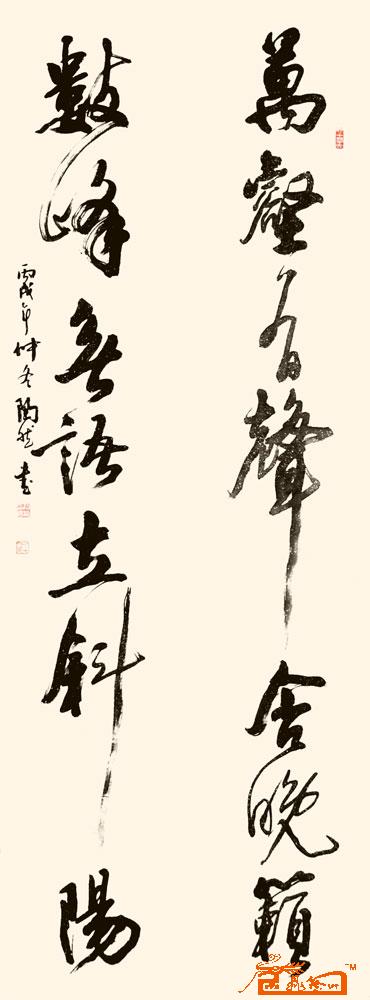 萬壑有聲含晚籟
數峰無語立斜陽
丙戌年仲冬陶然書